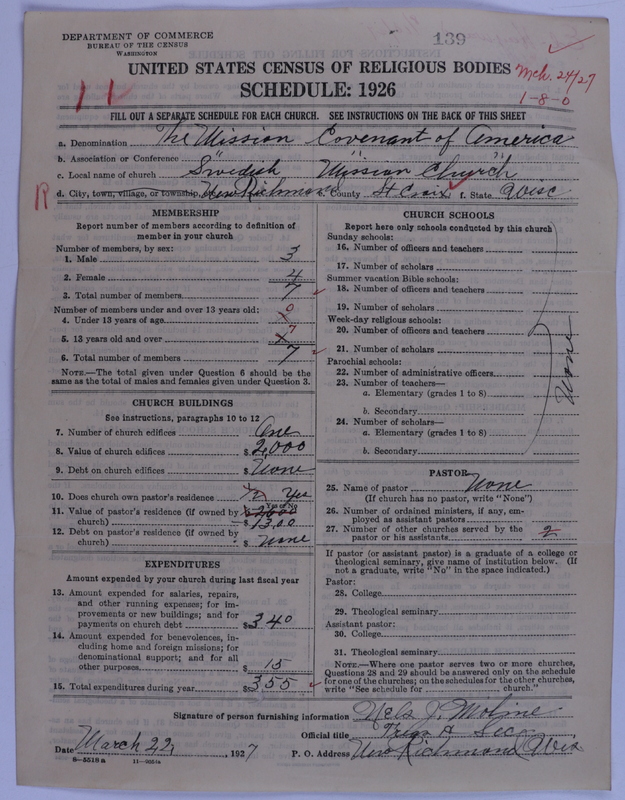 DEPARTMENT OF COMMERCE
BUREAU OF THE CENSUS
WASHINGTON
139
UNITED STATES CENSUS OF RELIGIOUS BODIES
Mch. 24/27
SCHEDULE: 1926
1-8-0
11
FILL OUT A SEPARATE SCHEDULE FOR EACH CHURCH. SEE INSTRUCTIONS ON THE BACK OF THIS SHEET
a. Denomination The Mission Covenant of America
b. Association or Conference " " "
c. Local name of church Swedish Mission Church
R
d. City, town, village, or township, New Richmond County St Croix f. State Wisc
MEMBERSHIP
Report number of members according to definition of
member in your church
Number of members, by sex:
1. Male 3
2. Female 4
3. Total number of members 7
Number of members under and over 13 years old:
4. Under 13 years of age 0
5. 13 years old and over 7
6. Total number of members 7
NOTE.—The total given under Question 6 should be the
same as the total of males and females given under Question 3.
CHURCH BUILDINGS
See instructions, paragraphs 10 to 12
7. Number of church edifices One
8. Value of church edifices $ 2,000
9. Debt on church edifices $ None
10. Does church own pastor's residence Yes
Yes or No
11. Value of pastor's residence (if owned by $ 2000
church) $ 1300
12. Debt on pastor's residence (if owned by
church) $ None
EXPENDITURES
Amount expended by your church during last fiscal year
13. Amount expended for salaries, repairs,
and other running expenses; for im-
provements or new buildings; and for
payments on church debt $ 340
14. Amount expended for benevolences, in-
cluding home and foreign missions; for
denominational support; and for all
other purposes $ 15
15. Total expenditures during year $ 355
CHURCH SCHOOLS
Report here only schools conducted by this church
Sunday schools:
16. Number of officers and teachers
17. Number of scholars
Summer vacation Bible schools:
18. Number of officers and teachers
19. Number of scholars
Week-day religious schools:
20. Number of officers and teachers
21. Number of scholars
Parochial schools:
22. Number of administrative officers
23. Number of teachers—
a. Elementary (grades 1 to 8)
b. Secondary
24. Number of scholars—
a. Elementary (grades 1 to 8)
b. Secondary
None
PASTOR
25. Name of pastor None
(If church has no pastor, write "None")
26. Number of ordained ministers, if any, em-
ployed as assistant pastors
27. Number of other churches served by the
pastor or his assistants 2
If pastor (or assistant pastor) is a graduate of a college or
theological seminary, give name of institution below. (If
not a graduate, write "No" in the space indicated.)
Pastor:
28. College
29. Theological seminary
Assistant pastor:
30. College
31. Theological seminary
NOTE.—Where one pastor serves two or more churches,
Questions 28 and 29 should be answered only on the schedule
for one of the churches; on the schedules for the other churches,
write "See schedule for church."
Signature of person furnishing information Nels J. Moline
Official title Treas & Sec
Date March 22, 1927
P. O. Address New Richmond Wis
8—5518 a